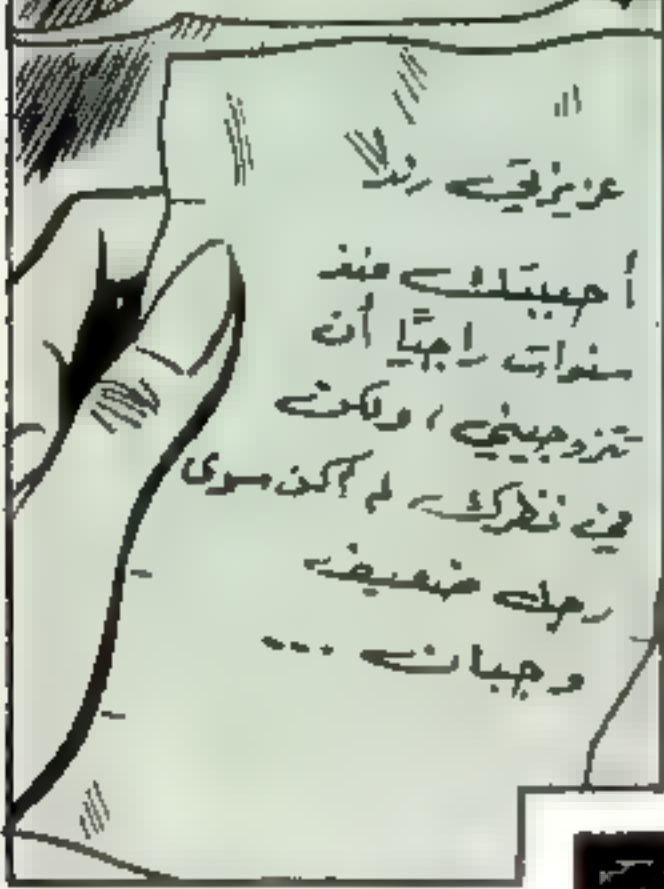 عزيزتي رند
أحببتك منذ
سنوات راجيًا أن
تتزوجيني، ولكن
في نظرك لم أكن سوى
رجل ضعيف
وجبان ...